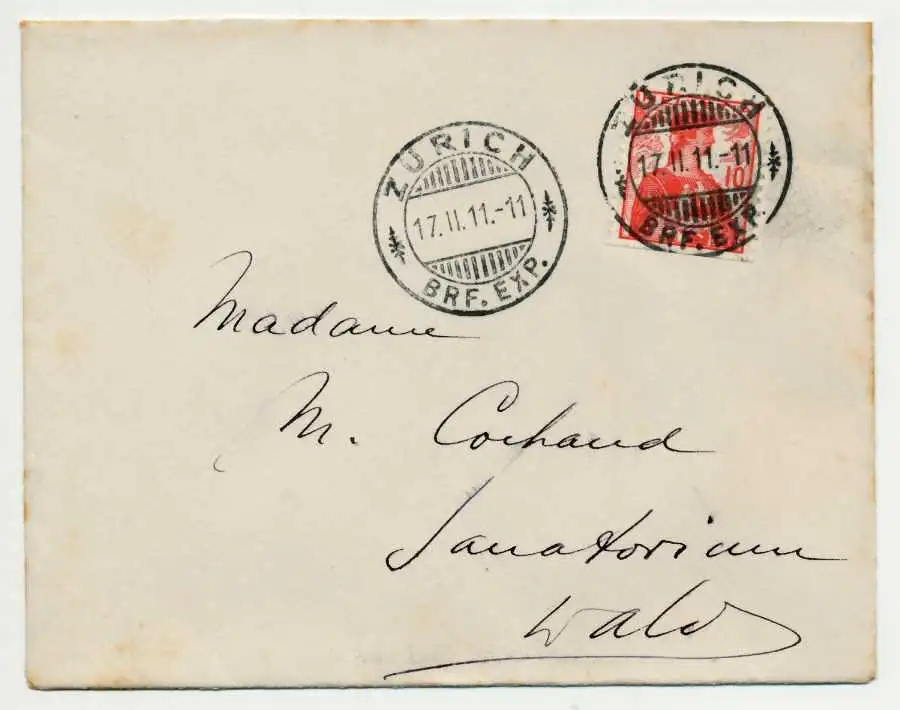 ZÜRICH
17.II.11.-11
BRF. EXP.
ZÜRICH
17.II.11.-11
10
BRF. EXP.
Madame
M. Cochand
Sanatorium
Wald